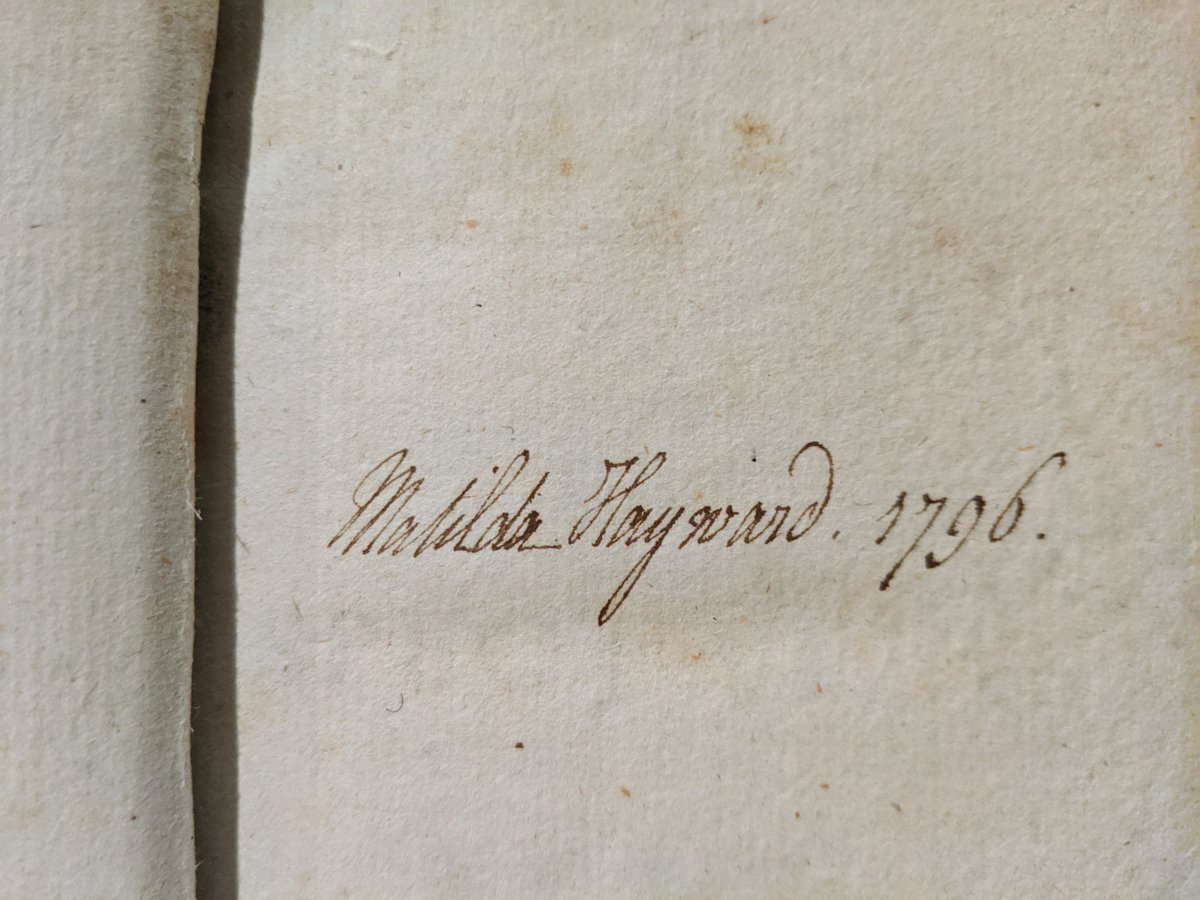 Matilda Hayward. 1796.